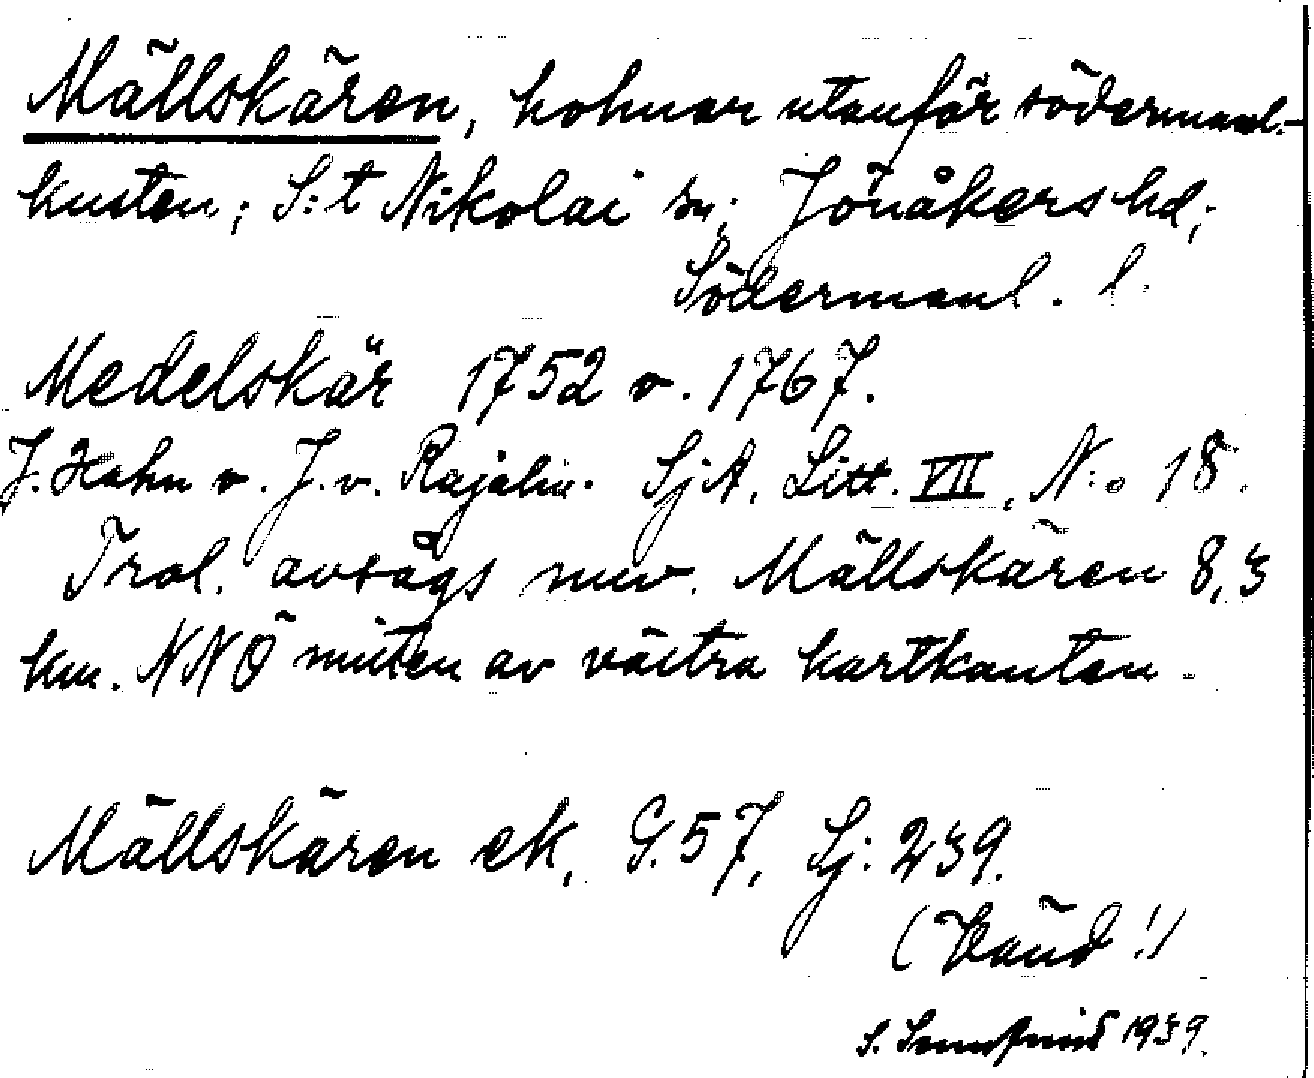 Mällskären, holmar utanför södermanl.-
kusten; S:t Nikolai sn; Jönåkers hd;
Södermanl. l.
Medelskär 1752 o. 1767.
J. Hahn o. J. v. Rajalin. SjA, Litt. VII, N:o 18.
Trol. avsågs nuv. Mällskären 8,3
km. NNO mitten av västra kartkanten.
Mällskären ek, G. 57, Sj: 239.
(Vänd!)
S. 1939.